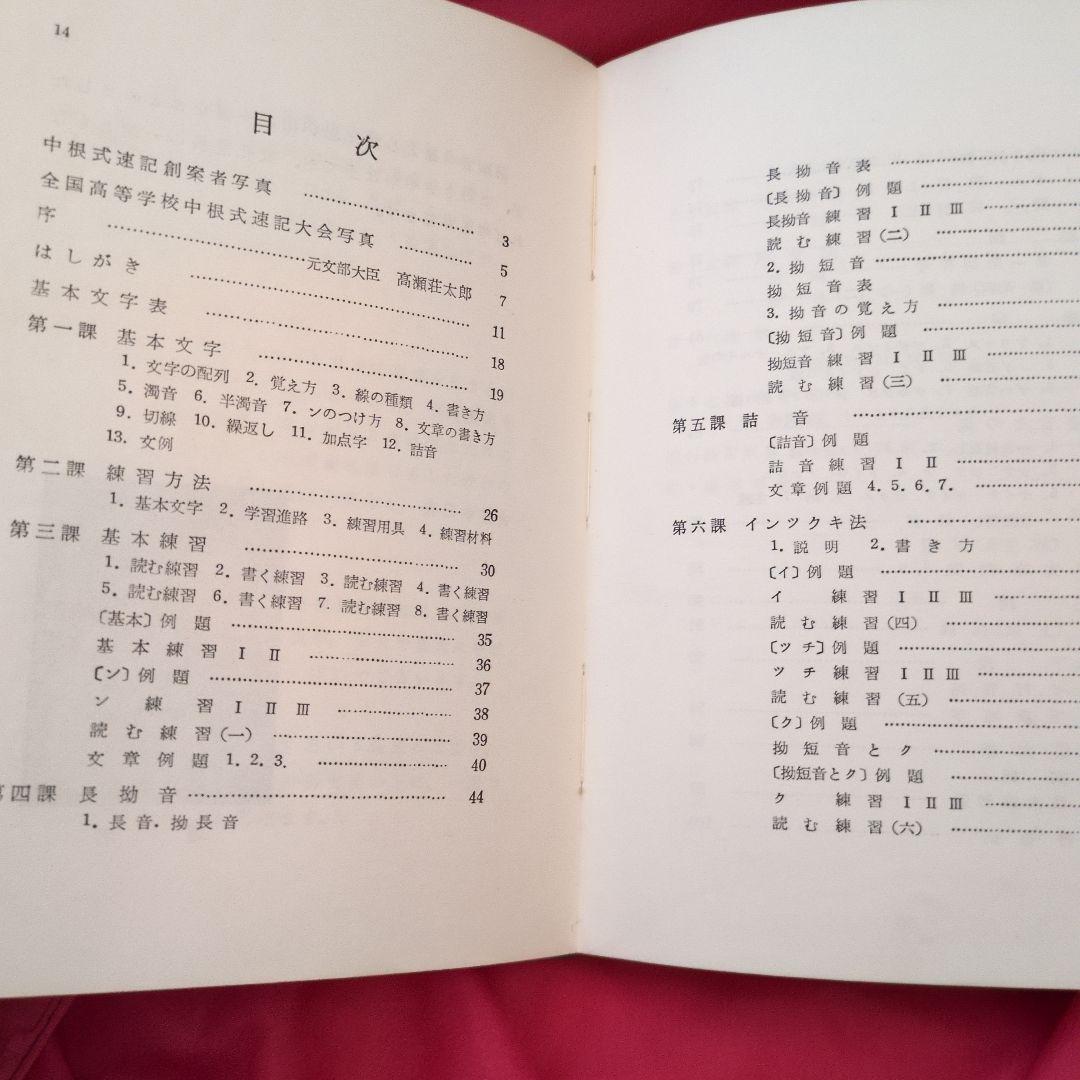 14
目次
中根式速記創案者写真 …… 3
全国高等学校中根式速記大会写真 …… 5
序 …… 元文部大臣 高瀬荘太郎 7
はしがき …… 11
基本文字表 …… 18
第一課 基本文字 …… 19
1. 文字の配列 2. 覚え方 3. 線の種類 4. 書き方
5. 濁音 6. 半濁音 7. ンのつけ方 8. 文章の書き方
9. 切線 10. 繰返し 11. 加点字 12. 詰音
13. 文例
第二課 練習方法 …… 26
1. 基本文字 2. 学習進路 3. 練習用具 4. 練習材料
第三課 基本練習 …… 30
1. 読む練習 2. 書く練習 3. 読む練習 4. 書く練習
5. 読む練習 6. 書く練習 7. 読む練習 8. 書く練習
〔基本〕例題 …… 35
基本練習 Ⅰ Ⅱ …… 36
〔ン〕例題 …… 37
ン 練習 Ⅰ Ⅱ Ⅲ …… 38
読む練習(一) …… 39
文章例題 1. 2. 3. …… 40
第四課 長拗音 …… 44
1. 長音. 拗長音
長拗音表 ……
〔長拗音〕例題 ……
長拗音練習 Ⅰ Ⅱ Ⅲ ……
読む練習(二) ……
2. 拗短音 ……
拗短音表
3. 拗音の覚え方 ……
〔拗短音〕例題 ……
拗短音練習 Ⅰ Ⅱ Ⅲ ……
読む練習(三) ……
第五課 詰音 ……
〔詰音〕例題
詰音練習 Ⅰ Ⅱ ……
文章例題 4. 5. 6. 7. ……
第六課 インツクキ法 ……
1. 説明 2. 書き方
〔イ〕例題 ……
イ 練習 Ⅰ Ⅱ Ⅲ ……
読む練習(四) ……
〔ツチ〕例題 ……
ツチ 練習 Ⅰ Ⅱ Ⅲ ……
読む練習(五) ……
〔ク〕例題 ……
拗短音とク ……
〔拗短音とク〕例題 ……
ク 練習 Ⅰ Ⅱ Ⅲ ……
読む練習(六) ……